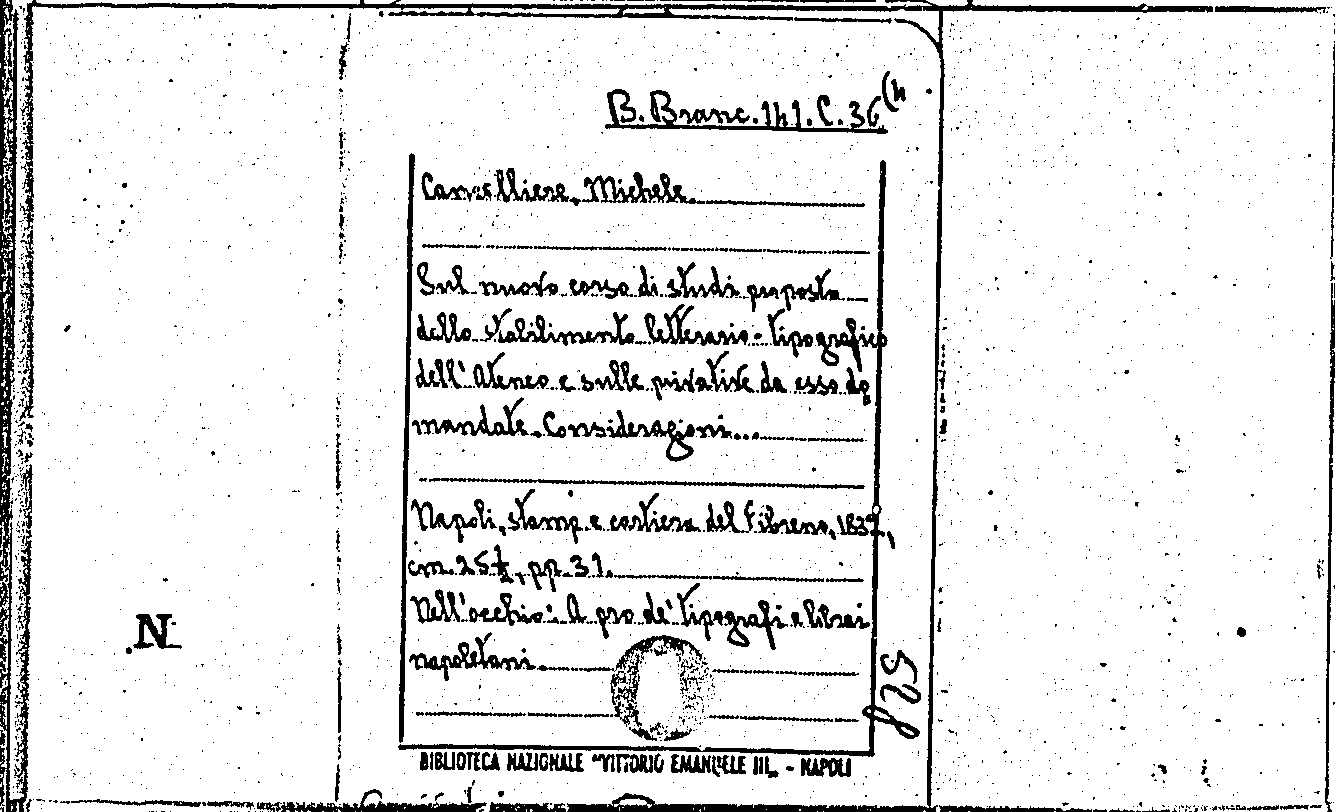 B. Branc. 141. C. 36 (4
Cancelliere, Michele.
Sul nuovo corso di studi proposto
dallo stabilimento letterario-tipografico
dell'Ateneo e sulle privative da esso do
mandate. Considerazioni...
Napoli, stamp. e cartiera del Fibreno, 1837,
cm. 25½, pp. 31.
Nell'occhio: A pro de' tipografi e librai
napoletani.
528
N
BIBLIOTECA NAZIONALE "VITTORIO EMANUELE III. - NAPOLI